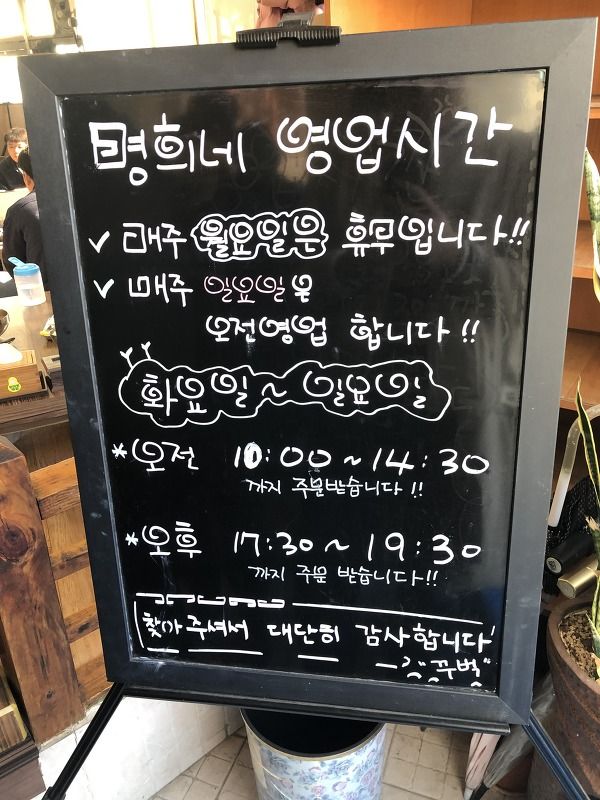 명희네 영업시간
✓ 매주 월요일은 휴무입니다!!
✓ 매주 일요일은
오전영업 합니다!!
화요일~일요일
*오전 10:00~14:30
까지 주문받습니다!!
*오후 17:30~19:30
까지 주문 받습니다!!
찾아주셔서 대단히 감사합니다
"꾸벅"